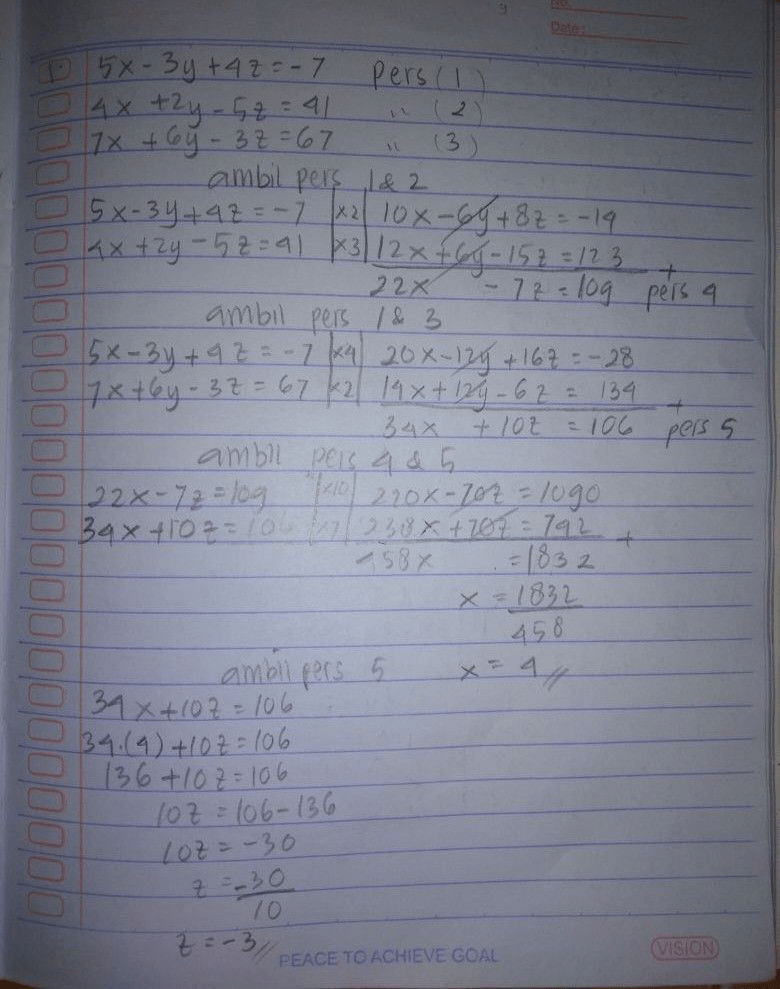 No.
Date:
1. 5x - 3y + 4z = -7 pers (1)
4x + 2y - 5z = 41 " (2)
7x + 6y - 3z = 67 " (3)
ambil pers 1 & 2
5x - 3y + 4z = -7 |x2| 10x - 6y + 8z = -14
4x + 2y - 5z = 41 |x3| 12x + 6y - 15z = 123 +
22x - 7z = 109 pers 4
ambil pers 1 & 3
5x - 3y + 4z = -7 |x4| 20x - 12y + 16z = -28
7x + 6y - 3z = 67 |x2| 14x + 12y - 6z = 134 +
34x + 10z = 106 pers 5
ambil pers 4 & 5
22x - 7z = 109 |x10| 220x - 70z = 1090
34x + 10z = 106 |x7| 238x + 70z = 742 +
458x = 1832
x = 1832
458
ambil pers 5 x = 4 //
34x + 10z = 106
34.(4) + 10z = 106
136 + 10z = 106
10z = 106 - 136
10z = -30
z = -30
10
z = -3 //
PEACE TO ACHIEVE GOAL VISION